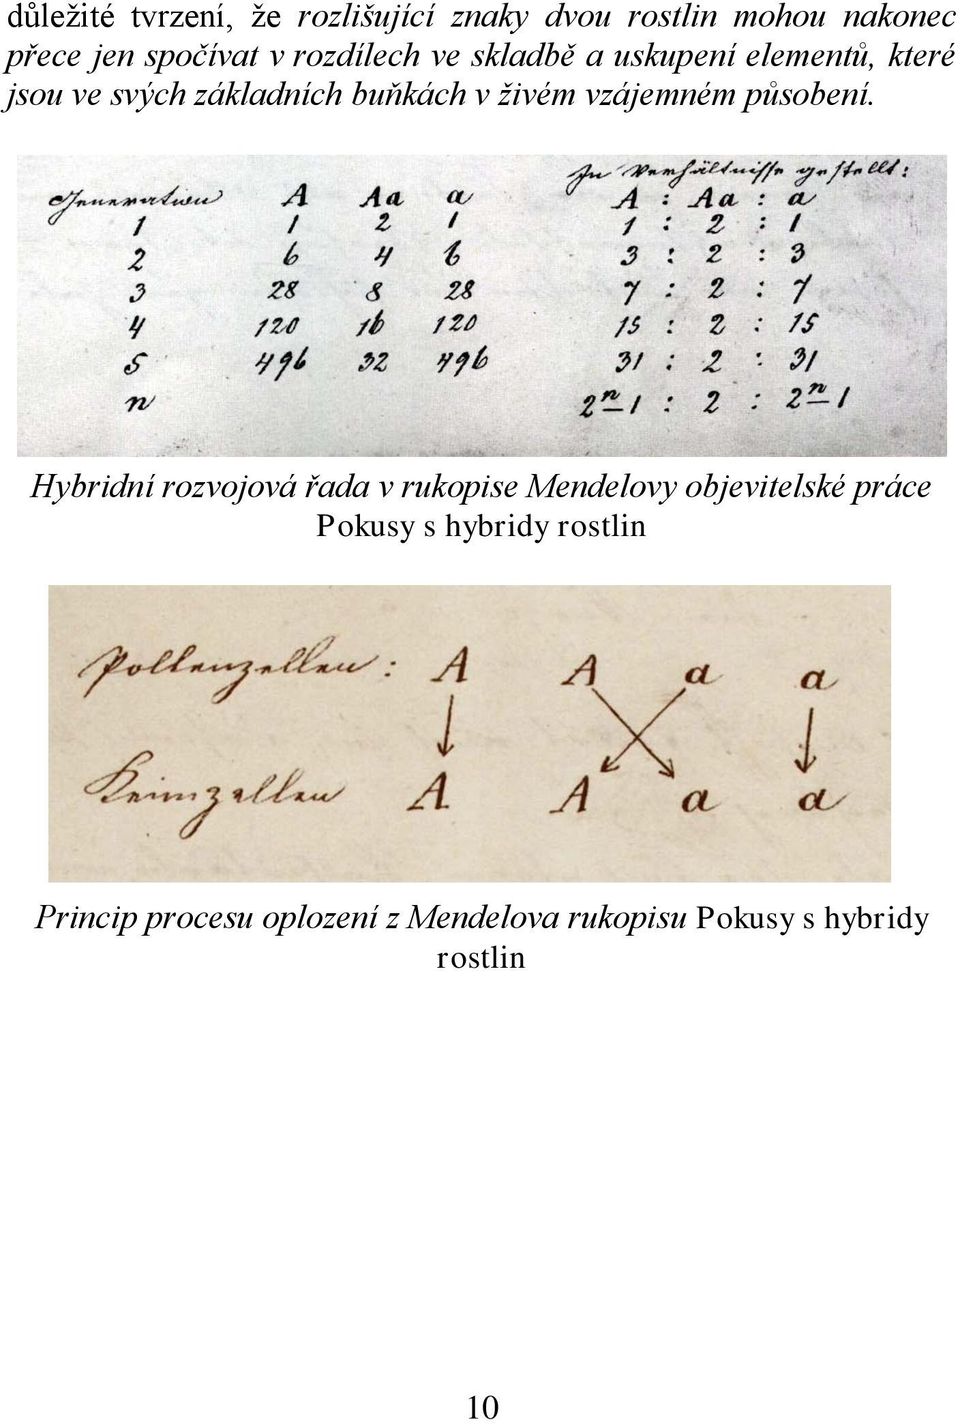 důležité tvrzení, že rozlišující znaky dvou rostlin mohou nakonec
přece jen spočívat v rozdílech ve skladbě a uskupení elementů, které
jsou ve svých základních buňkách v živém vzájemném působení.
In Verhältnisse gestellt:
Generation A Aa a A : Aa : a
1 1 2 1 1 : 2 : 1
2 6 4 6 3 : 2 : 3
3 28 8 28 7 : 2 : 7
4 120 16 120 15 : 2 : 15
5 496 32 496 31 : 2 : 31
n 2ⁿ–1 : 2 : 2ⁿ–1
Hybridní rozvojová řada v rukopise Mendelovy objevitelské práce
Pokusy s hybridy rostlin
Pollenzellen: A A a a
Keimzellen A A a a
Princip procesu oplození z Mendelova rukopisu Pokusy s hybridy
rostlin
10